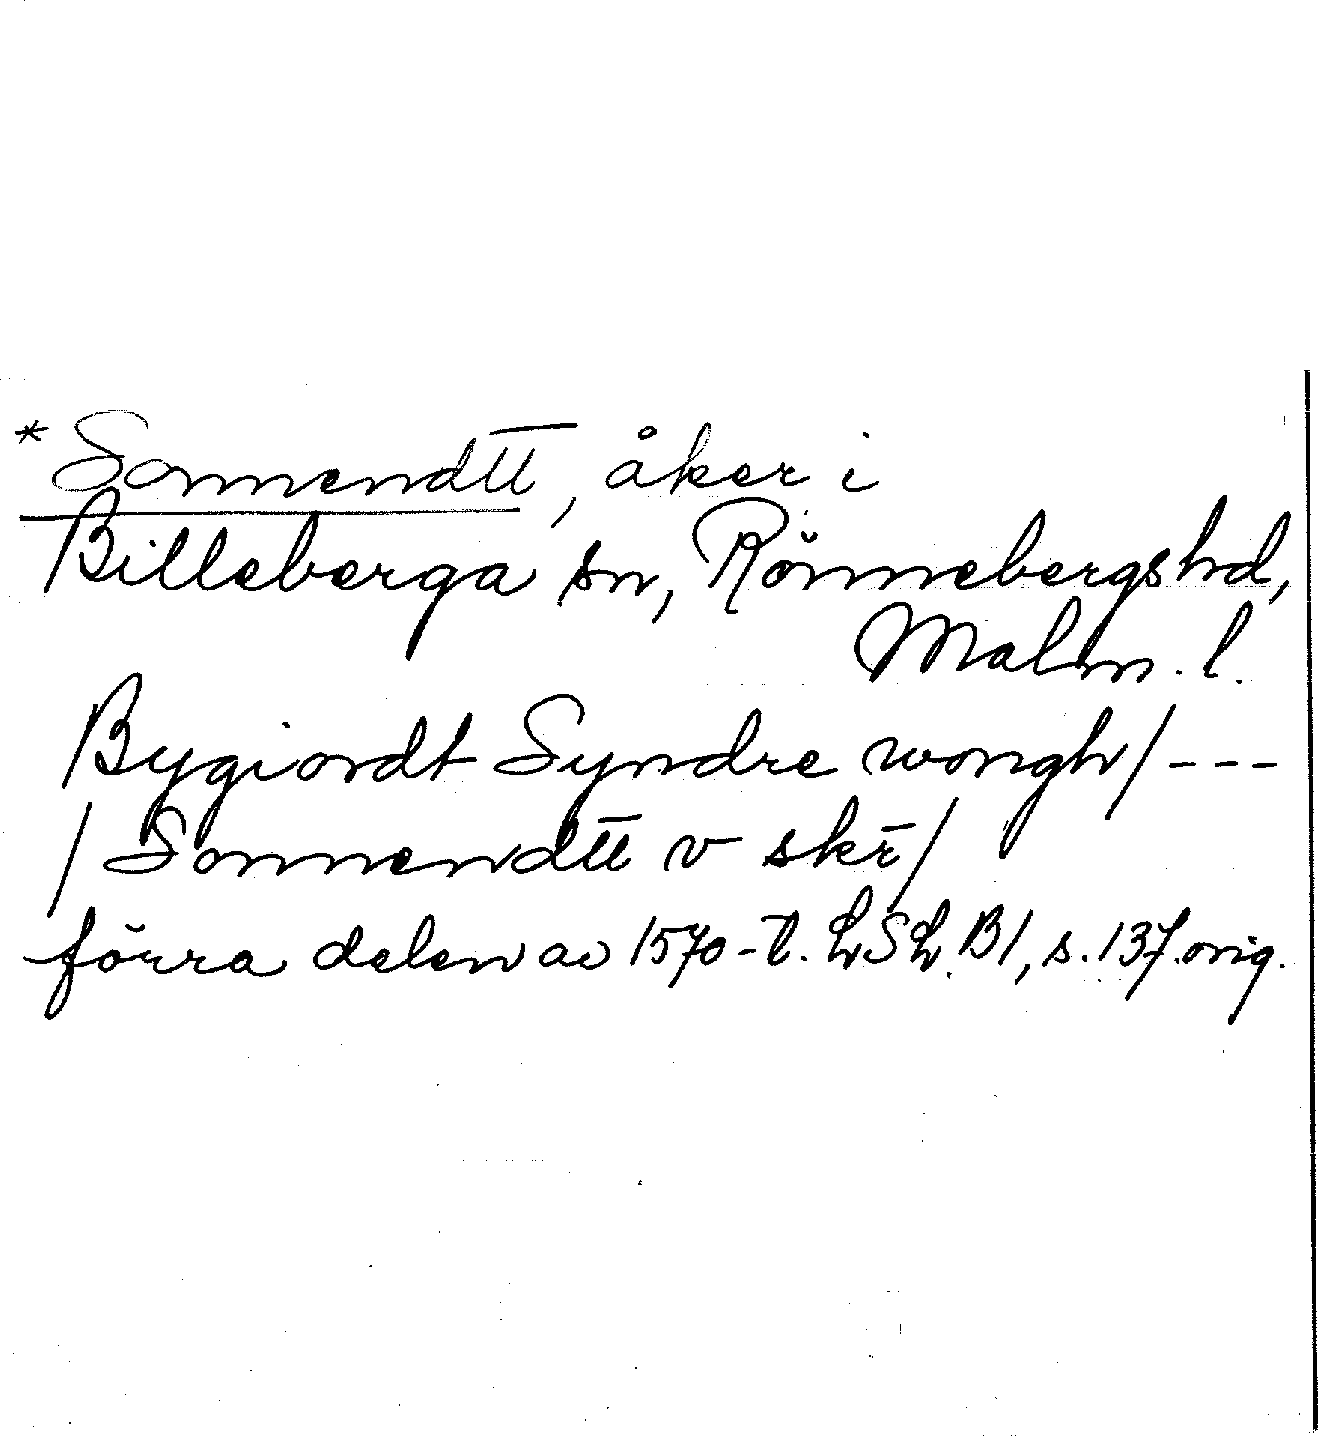 *Sonnendtt, åker i
Billeberga sn, Rönnebergs hd,
Malm. l.
Bygiordt Syndre wongh/---
/Sonnendtt v skr/
förra delen av 1570-t. LSL. B1, s. 137. orig.